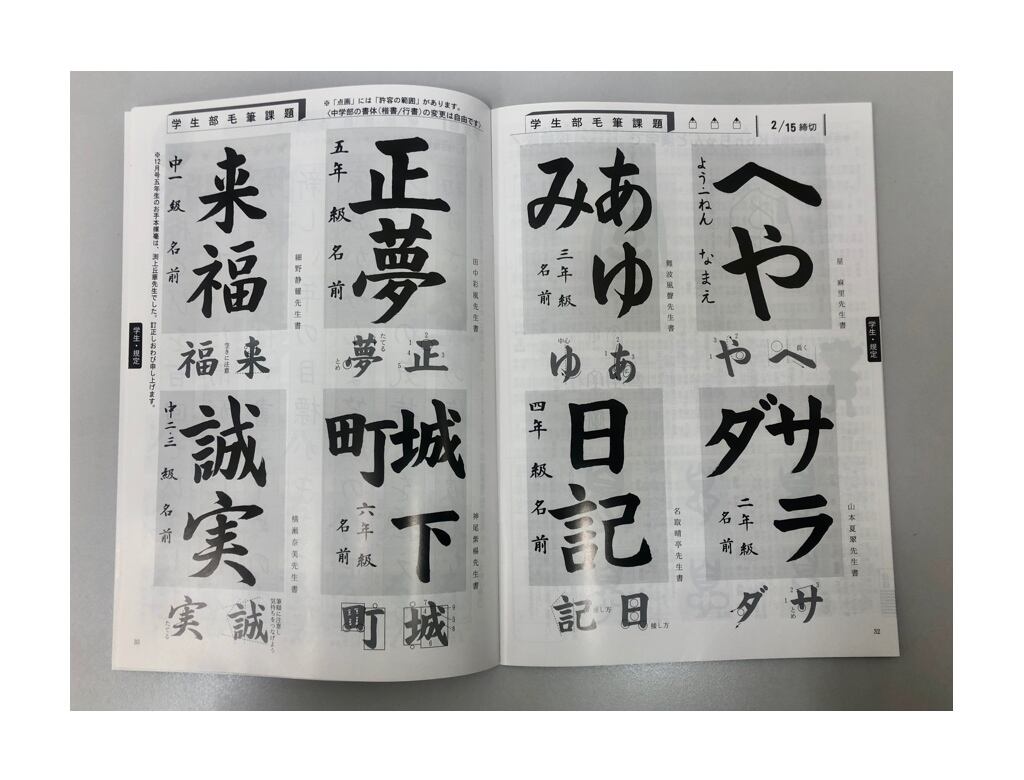 学生部毛筆課題
2/15 締切
へや
よう・一ねん なまえ
屋 麻里先生書
へ
長く
や
サラダ
二年 級 名前
山本夏翠先生書
サ
とめ
ダ
あゆみ
三年 級 名前
難波風聲先生書
あ
ゆ
中心
日記
四年 級 名前
名取晴亭先生書
日
接し方
記
接し方
学生・規定
32
学生部毛筆課題
※「点画」には「許容の範囲」があります。
〈中学部の書体(楷書/行書)の変更は自由です〉
正夢
五年 級 名前
田中彩風先生書
正
夢
たてる
とめ
城下町
六年 級 名前
神尾紫楊先生書
城
町
来福
中一 級 名前
細野静耀先生書
来
空きに注意
福
誠実
中二・三 級 名前
横瀬奈美先生書
誠
筆順に注意し
気持ちをつなげよう
実
たてる
※12月号五年生のお手本揮毫は、渕上丘華先生でした。訂正しおわび申し上げます。
学生・規定